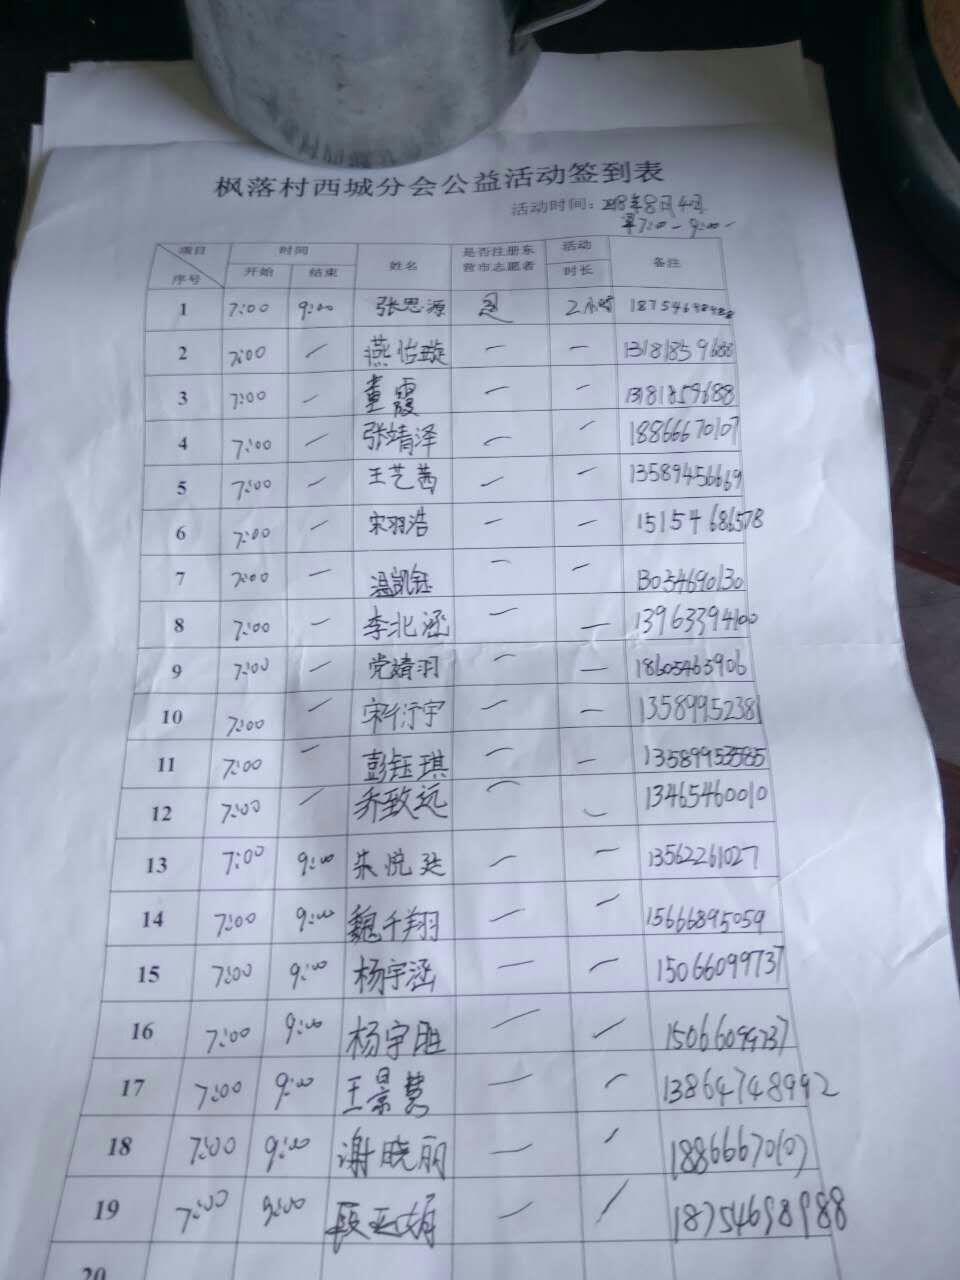 枫落村西城分会公益活动签到表
活动时间：2018年8月4日
早7:00-9:00
项目 序号 时间 开始 结束 姓名 是否注册东营市志愿者 活动时长 备注
1 7:00 9:00 张思源 是 2小时 18754698988
2 7:00 一 燕怡璇 一 一 13181859688
3 7:00 一 董霞 一 一 13181859688
4 7:00 一 张靖泽 一 一 18866670107
5 7:00 一 王艺茜 一 一 13589456669
6 7:00 一 宋羽浩 一 一 15154686578
7 7:00 一 温凯钰 一 一 13054690130
8 7:00 一 李北涵 一 一 13963394100
9 7:00 一 党婧羽 一 一 18605463906
10 7:00 一 宋行宇 一 一 13589952381
11 7:00 一 彭钰琪 一 一 13589953585
12 7:00 一 乔致远 一 一 13465460010
13 7:00 9:00 朱悦廷 一 一 13562261027
14 7:00 9:00 魏千翔 一 一 15666895059
15 7:00 9:00 杨宇涵 一 一 15066099737
16 7:00 9:00 杨宇胜 一 一 15066099737
17 7:00 9:00 王景慧 一 一 13864748992
18 7:00 9:00 谢晓丽 一 一 18866670107
19 7:00 9:00 段亚娟 一 一 18754698988
20